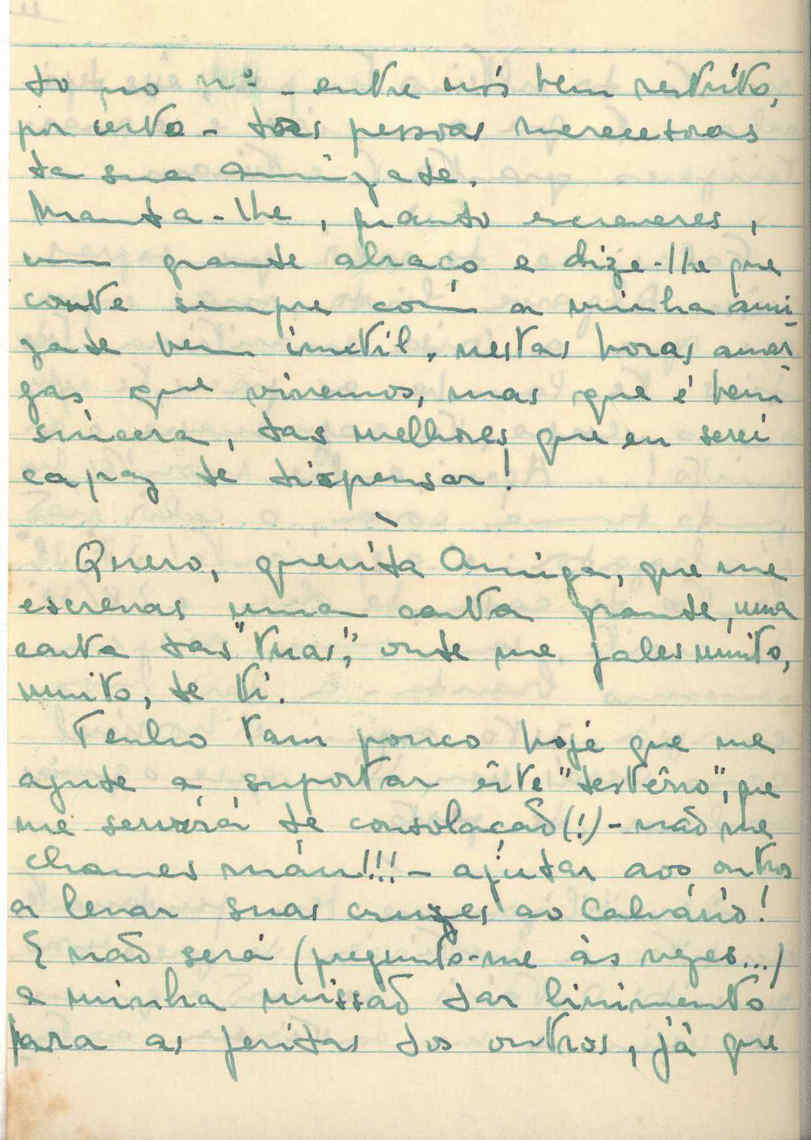 do no nº - entre nós bem restrito,
por certo - das pessoas merecedoras
da sua amizade.
Manda-lhe, quando escreveres,
um grande abraço e dize-lhe que
conte sempre com a minha ami
zade bem inutil, nestas horas amar
gas que vivemos, mas que é bem
sincera, das melhores que eu serei
capaz de dispensar!
Quero, querida Amiga, que me
escrevas uma carta grande, uma
carta das "tuas", onde me fales muito,
muito, de ti.
Tenho tam pouco hoje que me
ajude a suportar êste "destêrro", que
me servirá de consolação(!) - não me
chames máu!!! - ajudar aos outros
a levar suas cruzes ao Calvário!
E não será (pregunto-me às vezes...)
a minha missão dar linimento
para as feridas dos outros, já que